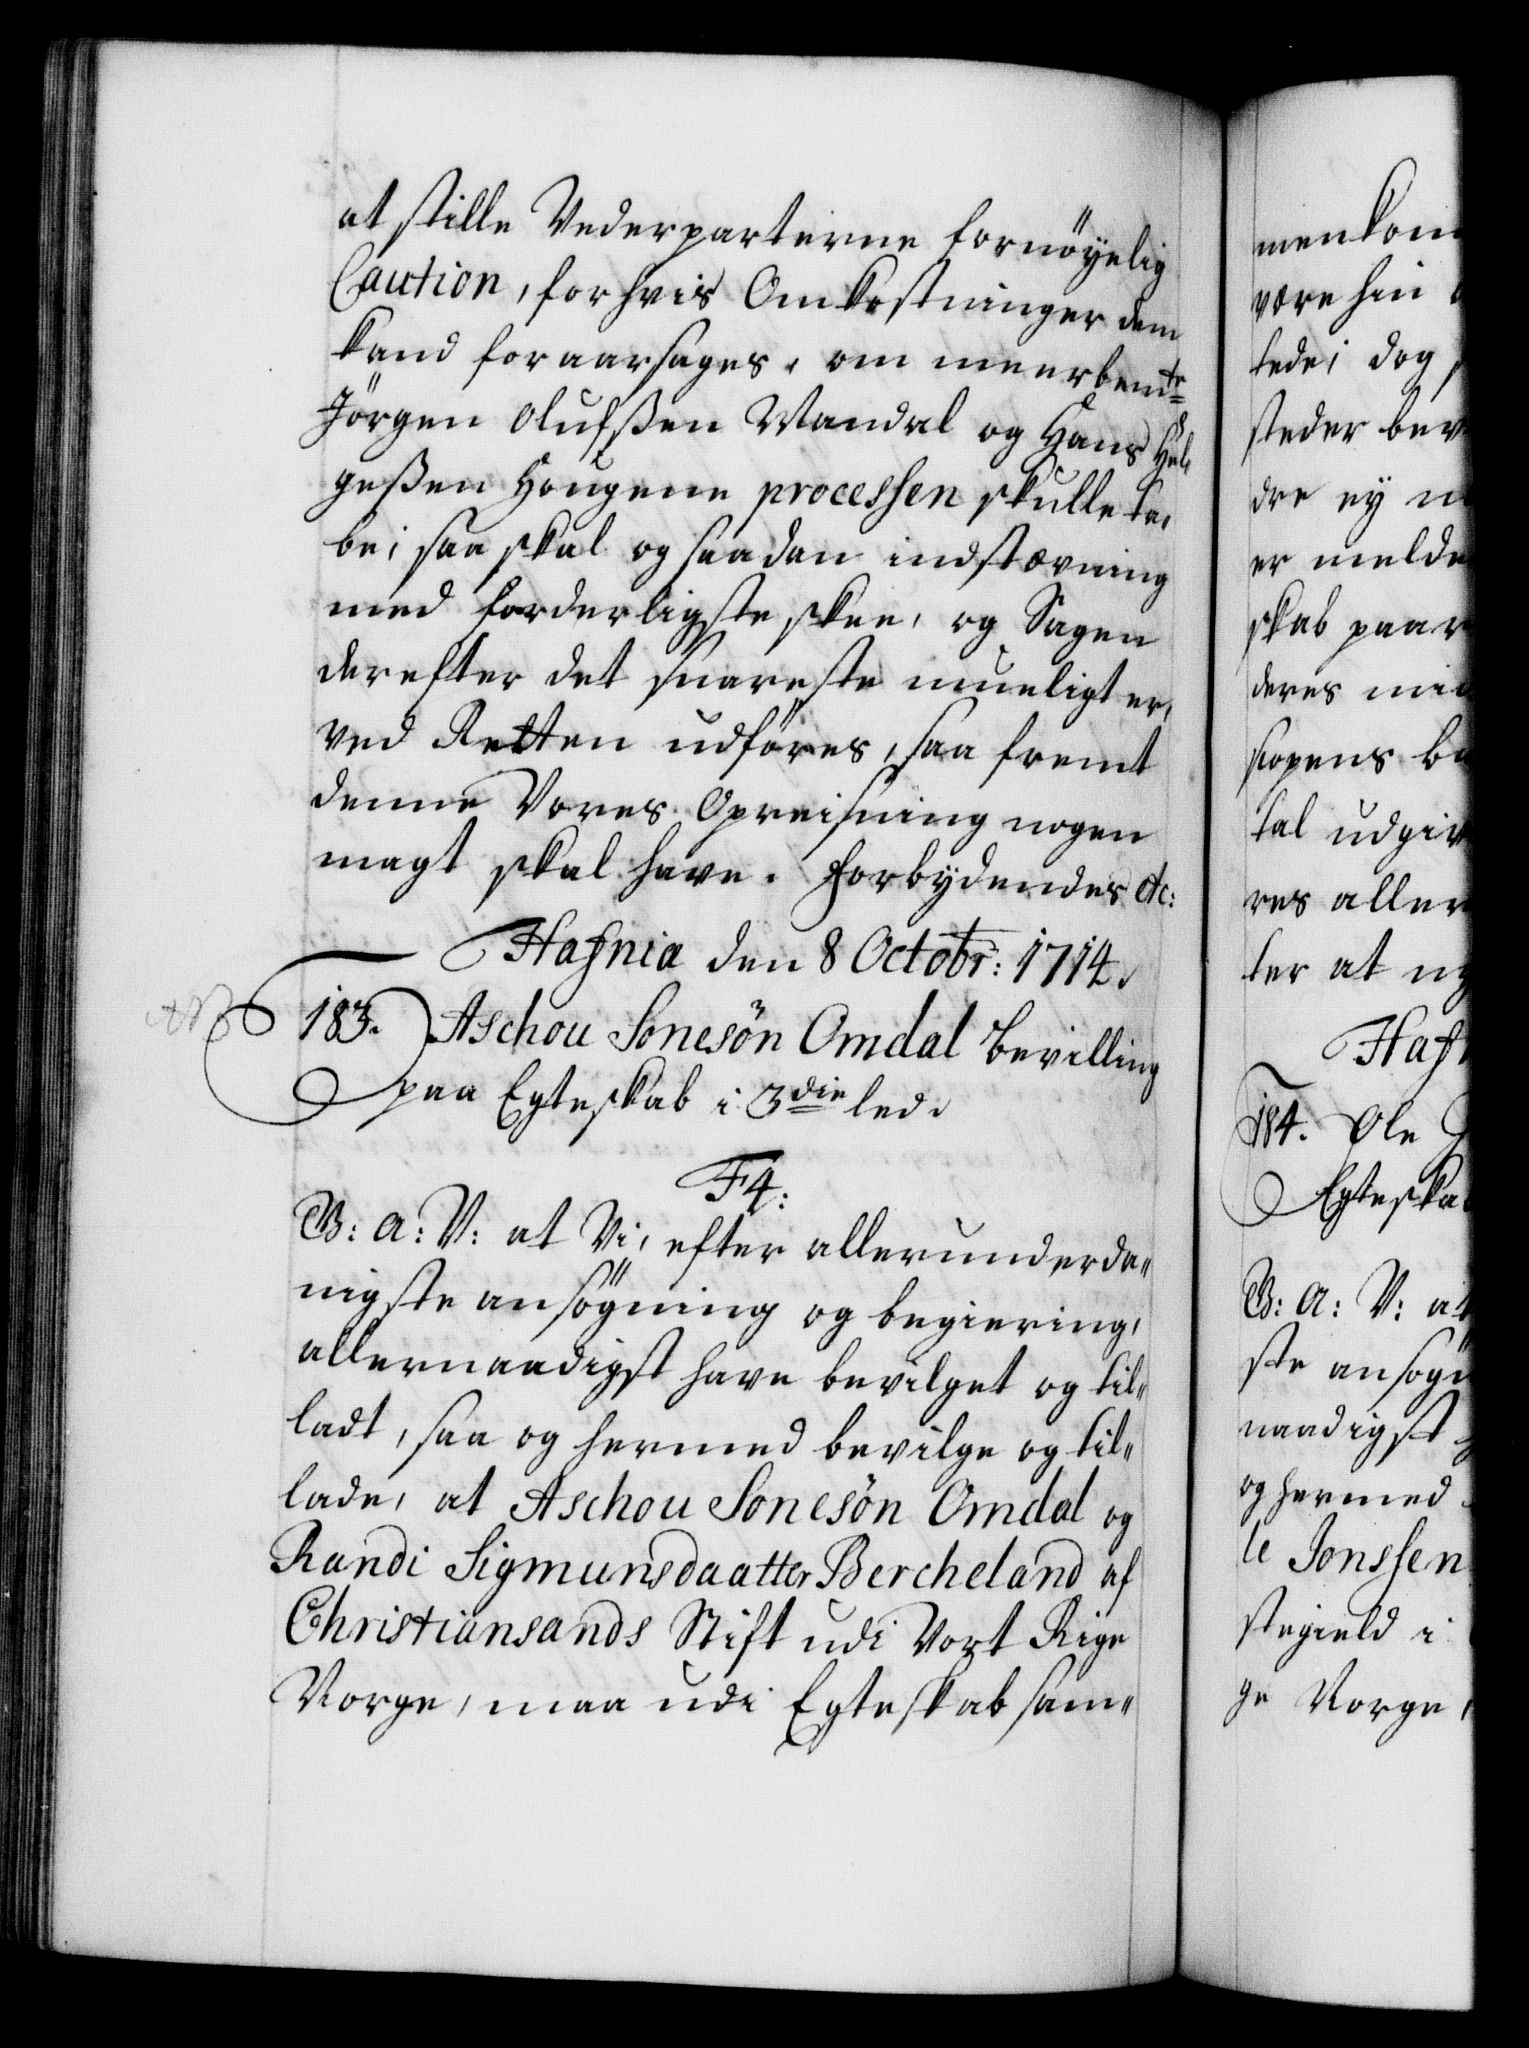 at stille Vederparterne fornöyelig
Caution, for hvis Omkostninger dem
kand foraarsages, om meerbemte
Jörgen Olufßen Wandal og Hans Hel¬
geßen Hougene processen skulle ta¬
be; saa skal og saadan indstævning
med forderligste skee, og Sagen
derefter det snareste mueligt er,
ved Retten udföres, saa fremt
denne Vores Opreisning nogen
magt skal have. Forbydendes etc:
Hafnia den 8 Octobr: 1714.
183. Aschou Sonesön Omdal bevilling
paa Egteskab i 3die led.
F4:
G: A: V: at Vi, efter allerunderda"
nigste ansögning og begiering,
allernaadigst have bevilget og til"
ladt, saa og hermed bevilge og til"
lade, at Aschou Sonesön Omdal og
Randi Sigmunsdaatter Bercheland af
Christiansands Stift udi Vort Rige
Norge, maa udi Egteskab sam"
menkom
være hin
lede; dog
steder bev
dre ey
er melde
skab paar
deres
sognens
tal udgiv
res aller
ter at
Haf
184. Ole
Egteska
G: A: V: at
ste ansögn
naadigst
og hermed
le Jonssen
stegield i
ge Norge,